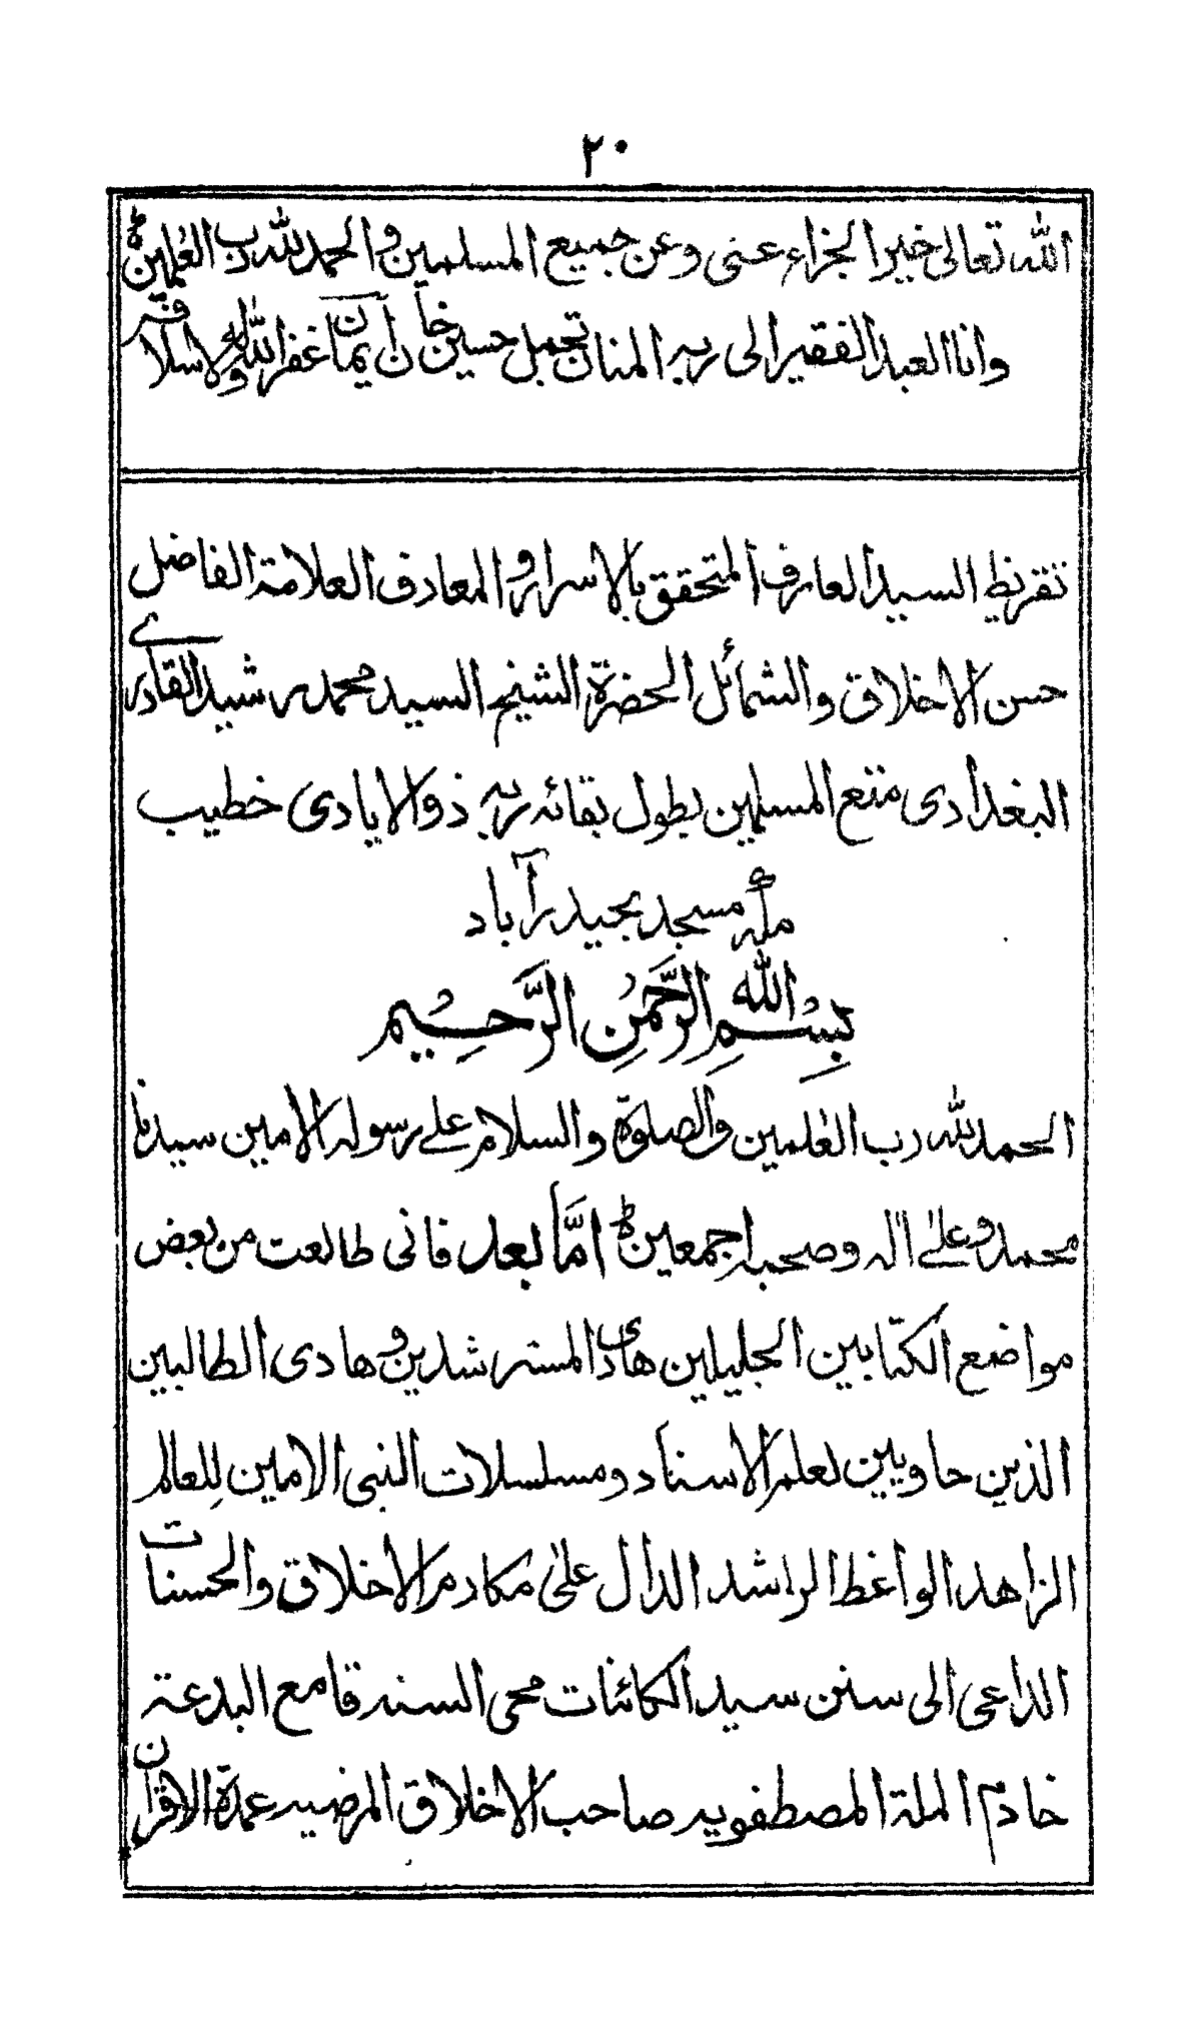 ٢٠
الله تعالى خير الجزاء عنى وعن جميع المسلمين والحمد لله رب العٰلمين
وانا العبد الفقير الى ربه المنان تجمل حسين خان غفر الله له ولاسلافه
تقريظ السيد العارف المتحقق بالاسرار و المعارف العلامة الفاضل
حسن الاخلاق والشمائل الحضرة الشيخ السيد محمد رشيد القادرى
البغدادى متع المسلمين بطول بقائه ربه ذو الايادى خطيب
مكه مسجد بحيدرآباد
بِسْمِ اللهِ الرَّحْمٰنِ الرَّحِيْمِ
الحمد لله رب العٰلمين والصلوة والسلام على رسوله الامين سيدنا
محمد وعلىٰ اٰله وصحبه اجمعين امَّا بعد فانى طالعت من بعض
مواضع الكتابين الجليلين هادى المسترشدين و هادى الطالبين
الذين حاويين لعلم الاسناد ومسلسلات النبى الامين لِلعالم
الزاهد الواغط الراشد الدال علىٰ مكارم الاخلاق والحسنات
الداعى الى سنن سيد الكائنات محى السنه قامع البدعة
خادم الملة المصطفويه صاحب الاخلاق المرضيه عمدة الاقران